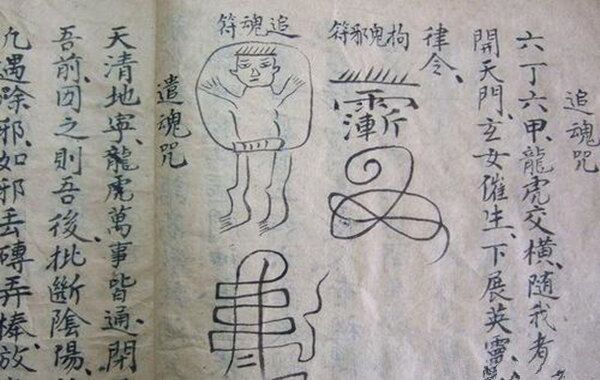 追魂咒
六丁六甲、龍虎交橫、隨我者
開天門、玄女催生、下展英靈
律令、
拘鬼邪符
追魂符
遣魂咒
天清地寧、龍虎萬事皆通、閉
吾前、因之則吾後、批斷陰陽、
凢遇除邪、如邪丟磚弄棒、放